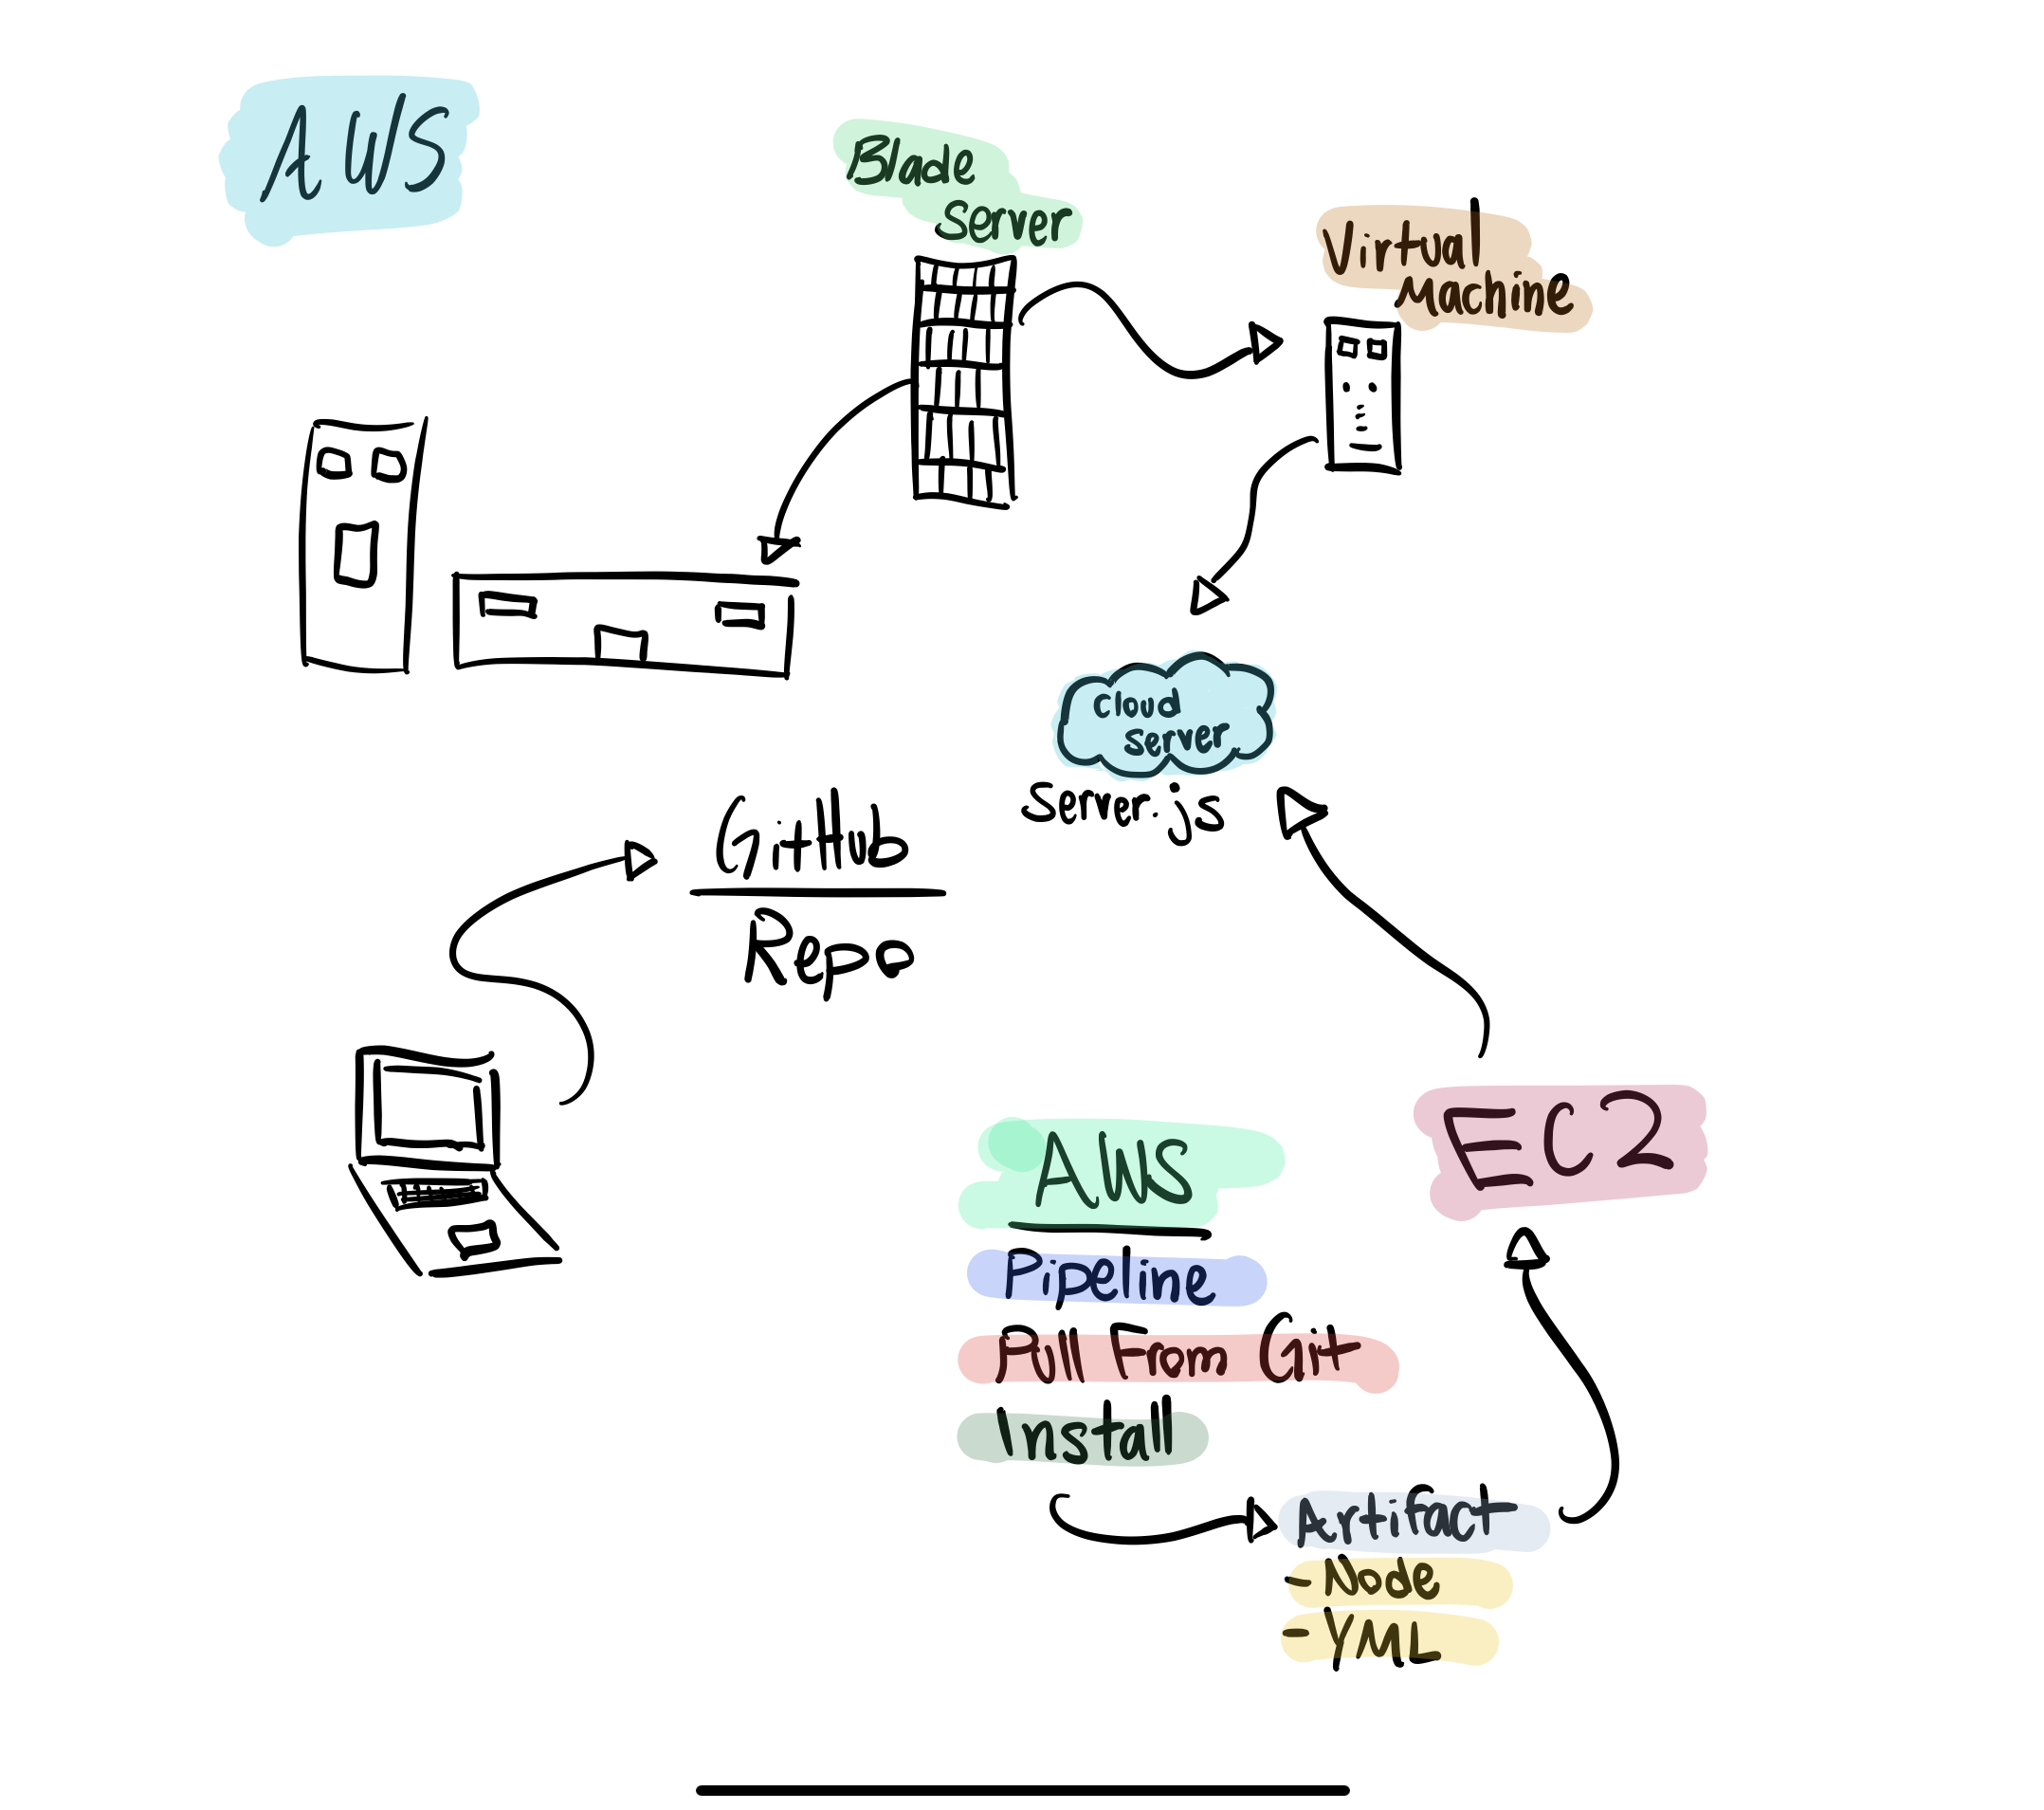 AWS
Blade
Server
Virtual
Machine
cloud
server
Server.js
GitHub
Repo
AWS
Pipeline
Pull From Git
Install
EC2
Artifact
- Node
- YML